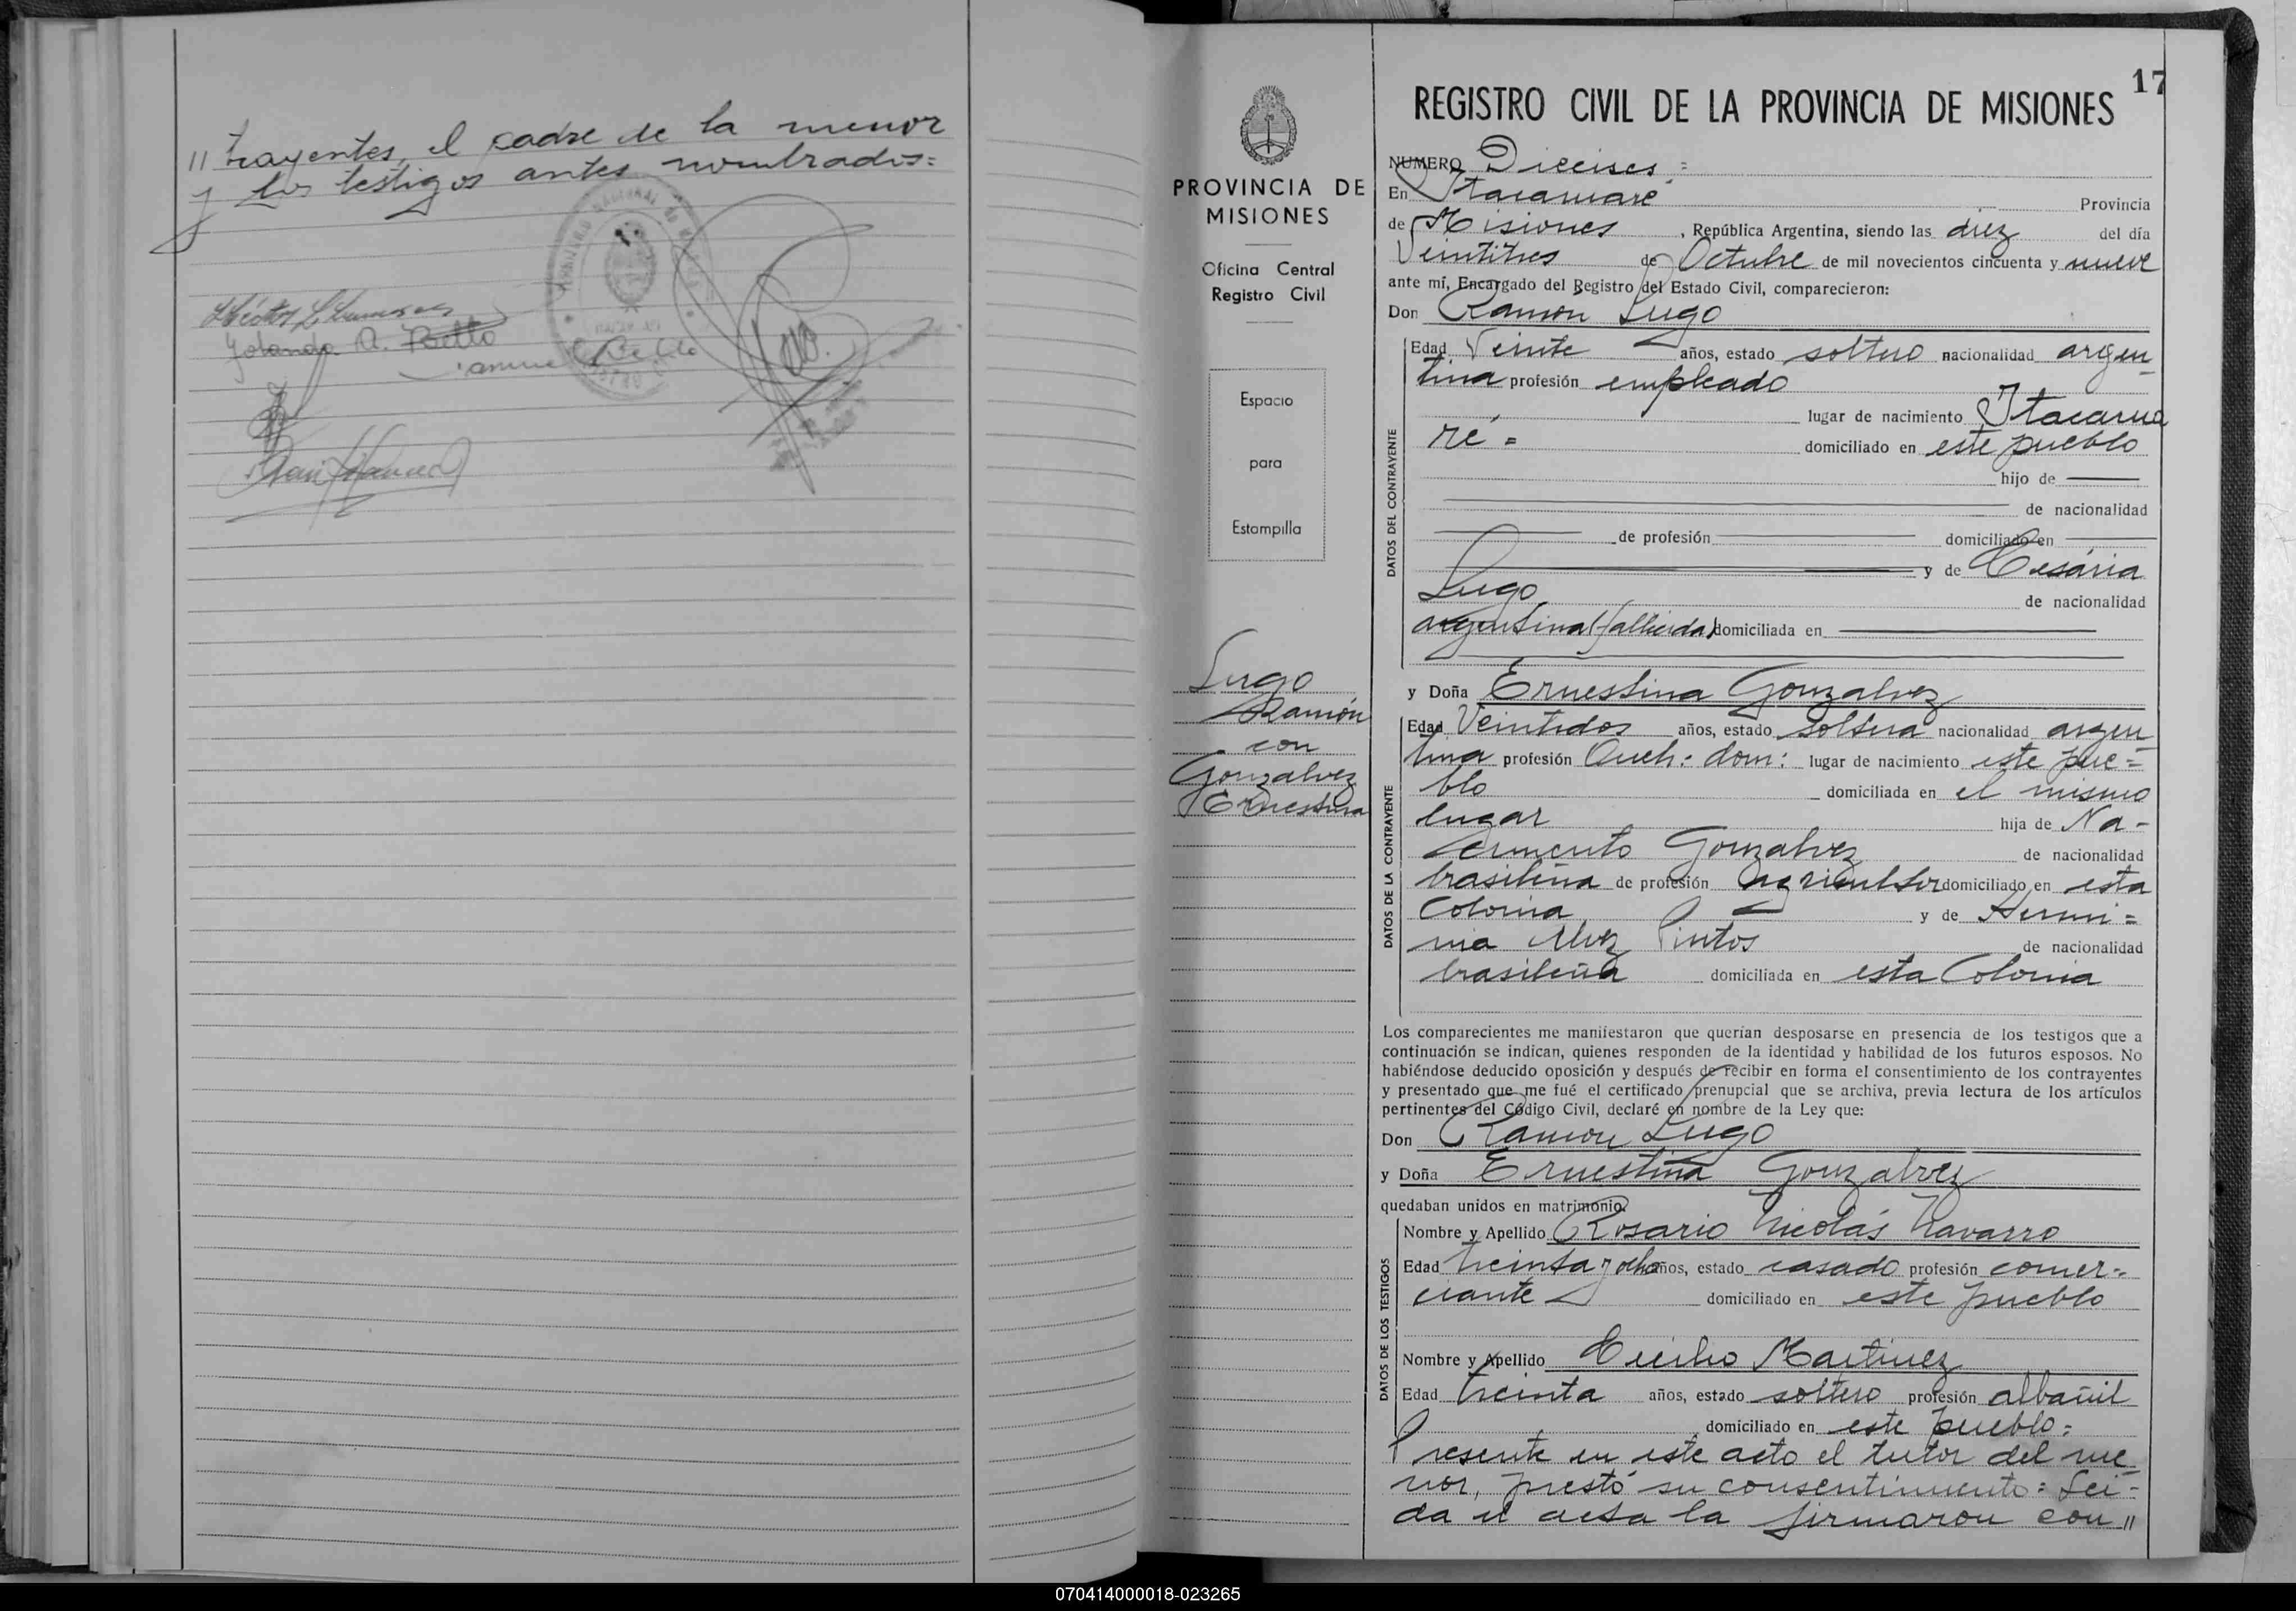 // trayentes, el padre de la menor
y los testigos antes nombrados=
Yolanda A. Bello
17
REGISTRO CIVIL DE LA PROVINCIA DE MISIONES
PROVINCIA DE
MISIONES
Oficina Central
Registro Civil
Espacio
para
Estampilla
Lugo
Ramón
con
Gonzalvez
Ernestina
NUMERO Dieciseis =
En Itacaruaré Provincia
de Misiones, República Argentina, siendo las diez del día
Veintitres de Octubre de mil novecientos cincuenta y nueve
ante mí, Encargado del Registro del Estado Civil, comparecieron:
Don Ramón Lugo
DATOS DEL CONTRAYENTE
Edad Veinte años, estado soltero nacionalidad argen-
tina profesión empleado
lugar de nacimiento Itacarua
ré = domiciliado en este pueblo
hijo de
de nacionalidad
de profesión domiciliado en
y de Cesária
Lugo de nacionalidad
argentina (fallecida) domiciliada en
y Doña Ernestina Gonzalvez
DATOS DE LA CONTRAYENTE
Edad Veintidos años, estado soltera nacionalidad argen-
tina profesión Queh: dom: lugar de nacimiento este pue=
blo domiciliada en el mismo
lugar hija de Na-
Gonzalvez de nacionalidad
brasileña de profesión agricultor domiciliado en esta
Colonia y de Hermi=
nia Alvez Pintos de nacionalidad
brasileña domiciliada en esta Colonia
Los comparecientes me manifestaron que querían desposarse en presencia de los testigos que a
continuación se indican, quienes responden de la identidad y habilidad de los futuros esposos. No
habiéndose deducido oposición y después de recibir en forma el consentimiento de los contrayentes
y presentado que me fué el certificado prenupcial que se archiva, previa lectura de los artículos
pertinentes del Código Civil, declaré en nombre de la Ley que:
Don Ramón Lugo
y Doña Ernestina Gonzalvez
quedaban unidos en matrimonio.
DATOS DE LOS TESTIGOS
Nombre y Apellido Rosario Nicolás Navarro
Edad treinta y ocho años, estado casado profesión comer-
ciante domiciliado en este pueblo
Nombre y Apellido Cecilio Martinez
Edad treinta años, estado soltero profesión albañil
domiciliado en este pueblo=
Presente en este acto el tutor del me-
nor, prestó su consentimiento= Lei-
da el acta la firmaron con //
070414000018-023265